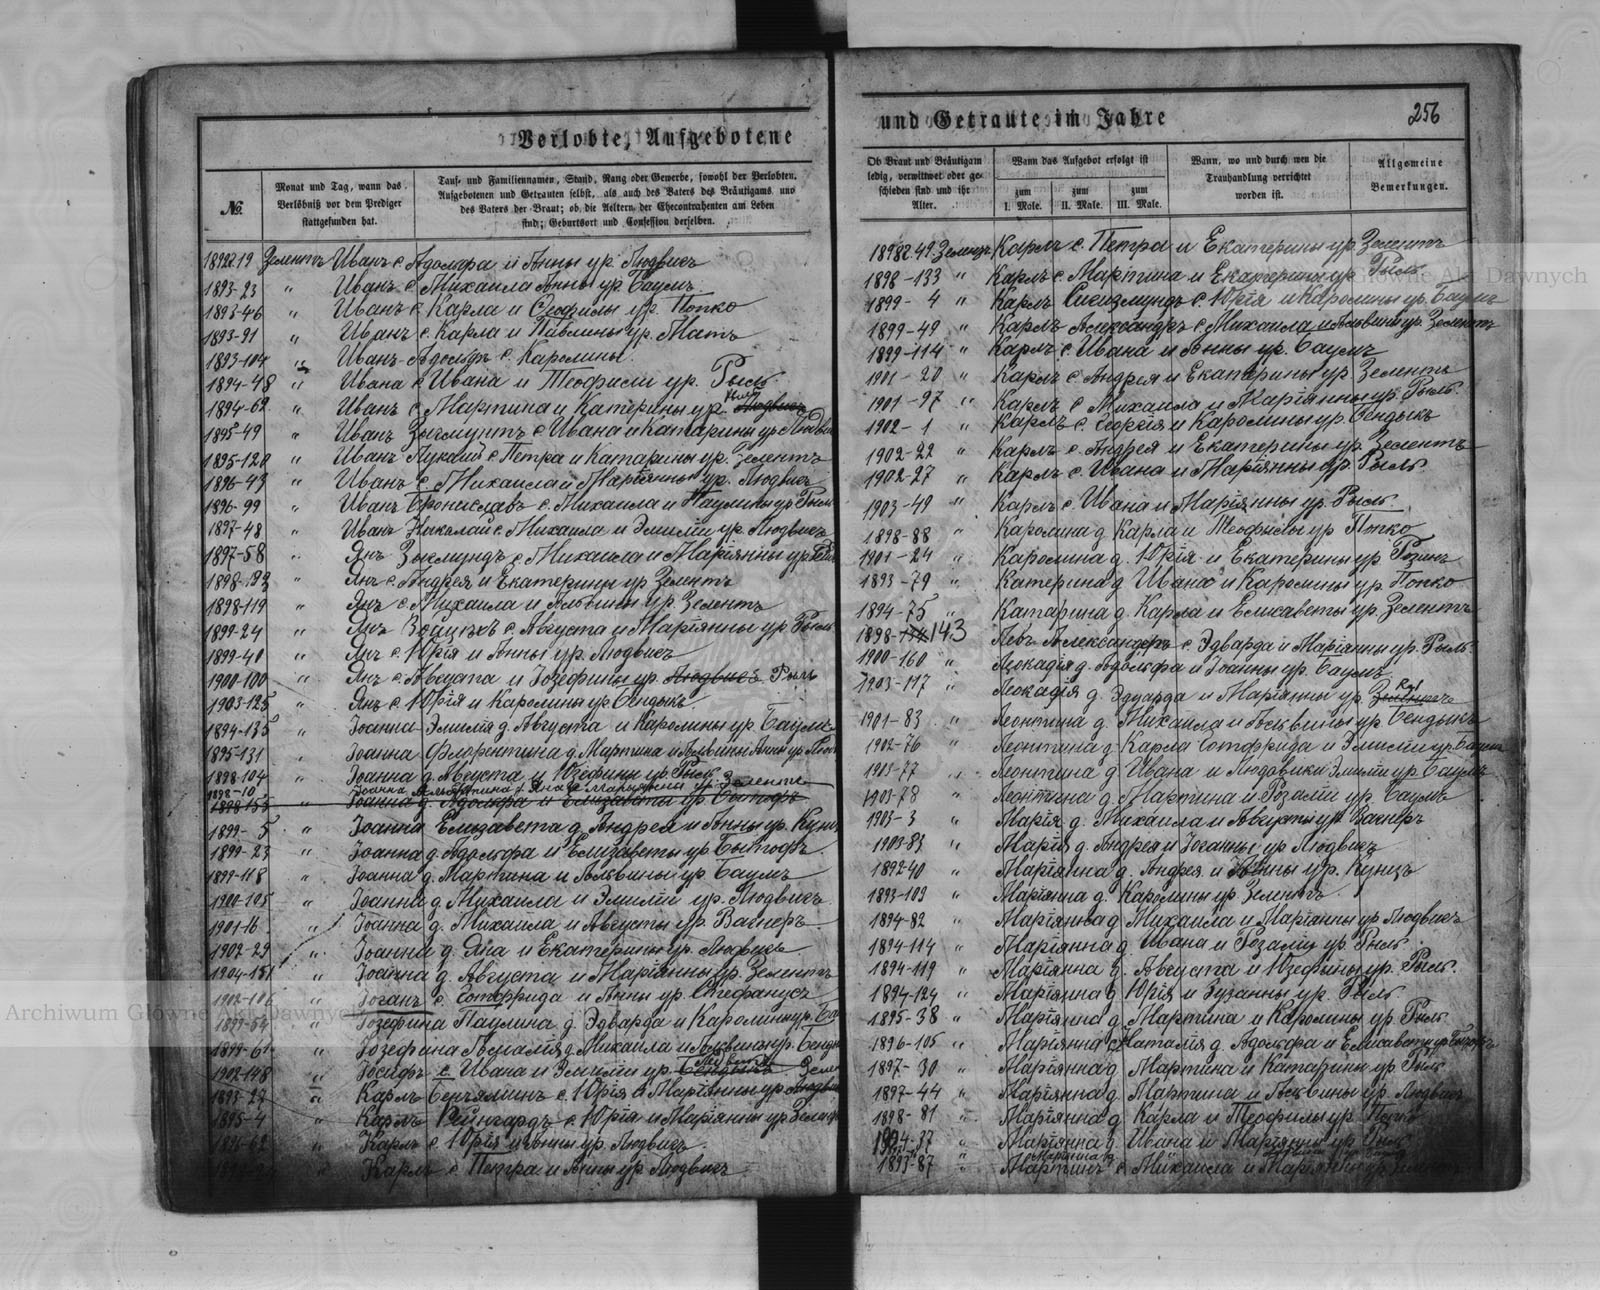 Verlobte, Aufgebotene
und Getraute im Jahre
256
№.
Monat und Tag, wann das
Verlöbniß vor dem Prediger
stattgefunden hat.
Tauf- und Familiennamen, Stand, Rang oder Gewerbe, sowohl der Verlobten,
Aufgebotenen und Getrauten selbst, als auch des Vaters des Bräutigams und
des Vaters der Braut; ob die Aeltern der Ehecontrahenten am Leben
sind; Geburtsort und Confession derselben.
Ob Braut und Bräutigam
ledig, verwittwet oder ge-
schieden sind und ihr
Alter.
Wann das Aufgebot erfolgt ist
zum
I. Male.
zum
II. Male.
zum
III. Male.
Wann, wo und durch wen die
Trauhandlung verrichtet
worden ist.
Allgemeine
Bemerkungen.
Зелентъ Иванъ с. Адольфа и Анны ур. Людвигъ
1893-23 " Иванъ с. Михаила Анны ур. Баумъ
1893-46 " Иванъ с. Карла и Теофилы ур. Попко
1893-91 " Иванъ с. Карла и Павлины ур. Матъ
1893-104 " Иванъ-Адольфъ с. Каролины.
1894-48 " Ивана с Ивана и Теофили ур. Рыль
1894-62 " Иванъ с Мартина и Катерины ур. Людвигъ
1895-49 " Иванъ Зыгмунтъ с Ивана и Катарины ур
1895-120 " Иванъ Лукаш с Петра и Катарины ур. Зелентъ
1896-43 " Иванъ с. Михаила и Маріянны ур. Людвигъ
1896-99 " Иванъ Брониславъ с. Михаила и Паулины ур Рыль
1897-48 " Иванъ Николай с. Михаила и Эмиліи ур. Людвигъ
1897-58 " Янъ Зыгмундъ с Михаила и Маріянны ур
" Янъ с. Андрея и Екатерины ур Зелентъ
1898-119 " Янъ с. Михаила и Альвины ур. Зелентъ
1899-24 " Янъ Войцехъ с. Августа и Маріянны ур Рыль
1899-40 " Янъ с. Юрія и Анны ур. Людвигъ
1900-100 " Янъ с. Августа и Іозефины ур. Людвигъ Рыль
1903-125 " Янъ с. Юрія и Каролины ур. Бендыкъ.
1894-135 " Іоанна-Эмилія д. Августа и Каролины ур. Баумъ
1895-131 " Іоанна Флорентина д. Мартина и
1898-104 " Іоанна д. Августа и Юзефины ур. Рыль
1898-10 Іоанна Альбертина д. Яна и Маріянны ур. Зелентъ
1898-153 " Іоанна д. Адольфа и Елизаветы ур.
1899-5 " Іоанна Елизавета д. Андрея и Анны ур. Кунцъ
1899-23 " Іоанна д. Адольфа и Елизаветы ур.
1899-118 " Іоанна д. Мартина и Альвины ур. Баумъ
1900-105 " Іоанна д. Михаила и Эмиліи ур. Людвигъ
1901-16 " Іоанна д. Михаила и Августы ур. Вагнеръ
1902-29 " Іоанна д. Яна и Екатерины ур. Людвигъ
1904-151 " Іоанна д. Августа и Маріянны ур. Зелентъ
1902-106 " Іоганъ с. Готфрида и Анны ур. Стефанусъ
1899-54 " Іозефина Паулина д. Эдварда и Каролины ур.
1899-61 " Іозефина д. Михаила и Альвины ур.
1902-148 " Іосифъ с Ивана и Эмиліи ур.
1893-22 " Карлъ Беньяминъ с. Юрія и Маріянны ур
1895-4 " Карлъ Рейнгардъ с Юрія и Маріянны ур. Зелентъ
" Карлъ с Юрія и Анны ур. Людвигъ
" Карлъ с Петра и Анны ур Людвигъ
Карлъ с. Петра и Екатерины ур Зелентъ
1898-133 " Карлъ с. Мартина и Екатерины ур. Рыль
1899-4 " Карлъ Сигизмундъ с Юрія и Каролины ур. Баумъ
1899-49 " Карлъ Александръ с Михаила и Альвины ур. Зелентъ
1899-114 " Карлъ с. Ивана и Анны ур. Баумъ
1901-20 " Карлъ с. Андрея и Екатерины ур Зелентъ
1901-97 " Карлъ с Михаила и Маріянны ур. Рыль.
1902-1 " Карлъ с. Георгія и Каролины ур. Бендыкъ
1902-22 " Карлъ с. Андрея и Екатерины ур. Зелентъ
1902-27 " Карлъ с. Ивана и Маріянны ур. Рыль.
1903-49 " Карлъ с. Ивана и Маріянны ур. Рыль.
1898-88 " Каролина д Карла и Теофилы ур Попко
1901-24 " Каролина д. Юрія и Екатерины ур
1893-79 " Катерина д Ивана и Каролины ур. Попко
1894-75 " Катарина д. Карла и Елисаветы ур. Зелентъ
1898-143 Левъ Александеръ с. Эдварда и Маріянны ур. Рыль.
1900-160 " Леокадія д. Адольфа и Іоанны ур. Баумъ
1903-117 " Леокадія д. Эдуарда и Маріянны ур. Rył
1901-83 " Леонтина д. Михаила и Альвины ур. Бендыкъ
1902-76 " Леонтина д Карла Готфрида и Эмиліи ур Баумъ
1903-77 " Леонтина д Ивана и Людовики Эмиліи ур. Баумъ
1903-78 " Леонтина д. Мартина и Розаліи ур. Баумъ
1903-3 " Марія д. Михаила и Августы ур. Вагнеръ
1903-83 " Марія д. Андрея и Іоганны ур. Людвигъ
1892-40 " Маріянна д. Андрея и Анны ур. Кунцъ
1893-109 " Маріянна д. Каролины ур Зелентъ
1894-82 " Маріянна д. Михаила и Маріанны ур Людвигъ
1894-114 " Маріянна д. Ивана и Розаліи ур Рыль.
1894-119 " Маріянна д. Августа и Юзефины ур. Рыль.
1894-124 " Маріянна д Юрія и Зузанны ур. Рыль
1895-38 " Маріянна д Мартина и Каролины ур. Рыль
1896-105 " Маріянна Наталія д. Адольфа и Елисаветы ур
1897-30 " Маріянна д Мартина и Катарины ур Рыль
1897-44 " Маріянна д Мартина и Альвины ур. Людвигъ
1898-81 " Маріянна д Карла и Теофилы ур. Попко
1904-37 " Маріянна д. Ивана и Маріянны ур Рыль
1893-87 " Мартинъ с Михаила и Маріянны ур
Archiwum Główne Akt Dawnych